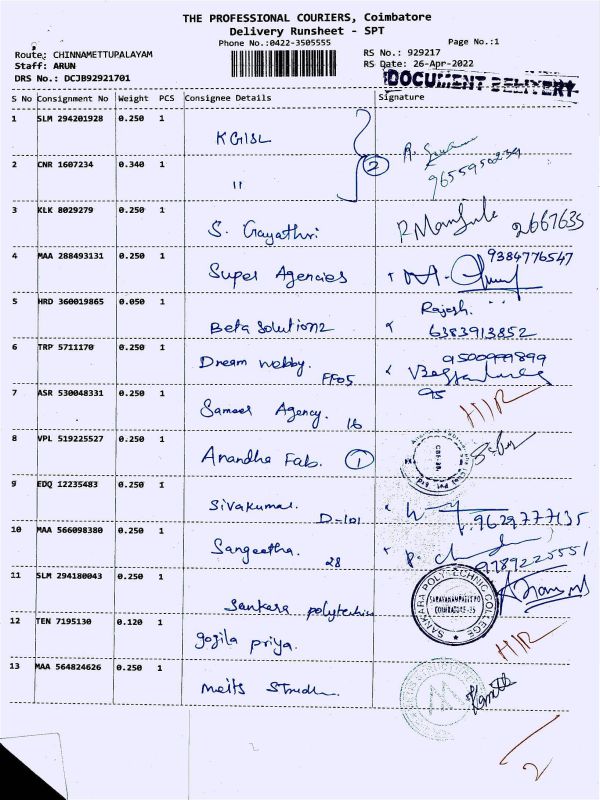 THE PROFESSIONAL COURIERS, Coimbatore
Delivery Runsheet - SPT
Phone No.:0422-3505555
Page No.:1
Route: CHINNAMETTUPALAYAM
RS No.: 929217
Staff: ARUN
RS Date: 26-Apr-2022
DRS No.: DCJB92921701
DOCUMENT DELIVERY
S No Consignment No Weight PCS Consignee Details Signature
1 SLM 294201928 0.250 1 KGISL
2 CNR 1607234 0.340 1 " 2
9655950234
3 KLK 8029279 0.250 1 S. Gayathri P Manjula 2667635
4 MAA 288493131 0.250 1 Super Agencies 9384776547
5 HRD 360019865 0.050 1 Beta Solutionz Rajesh. 6383913852
6 TRP 5711170 0.250 1 Dream webby. FF05 9500999899
7 ASR 530048331 0.250 1 Sameer Agency. 16 95 H/R
8 VPL 519225527 0.250 1 Anandha Fab. 1
9 EDQ 12235483 0.250 1 Sivakumar. D-101 9629777135
10 MAA 566098380 0.250 1 Sangeetha. 28 9789225551
11 SLM 294180043 0.250 1 Sankara polytechnic
SANKARA POLYTECHNIC COLLEGE
SARAVANAMPATTI PO
COIMBATORE-35
12 TEN 7195130 0.120 1 gojila priya. H/R
13 MAA 564824626 0.250 1 meits
2